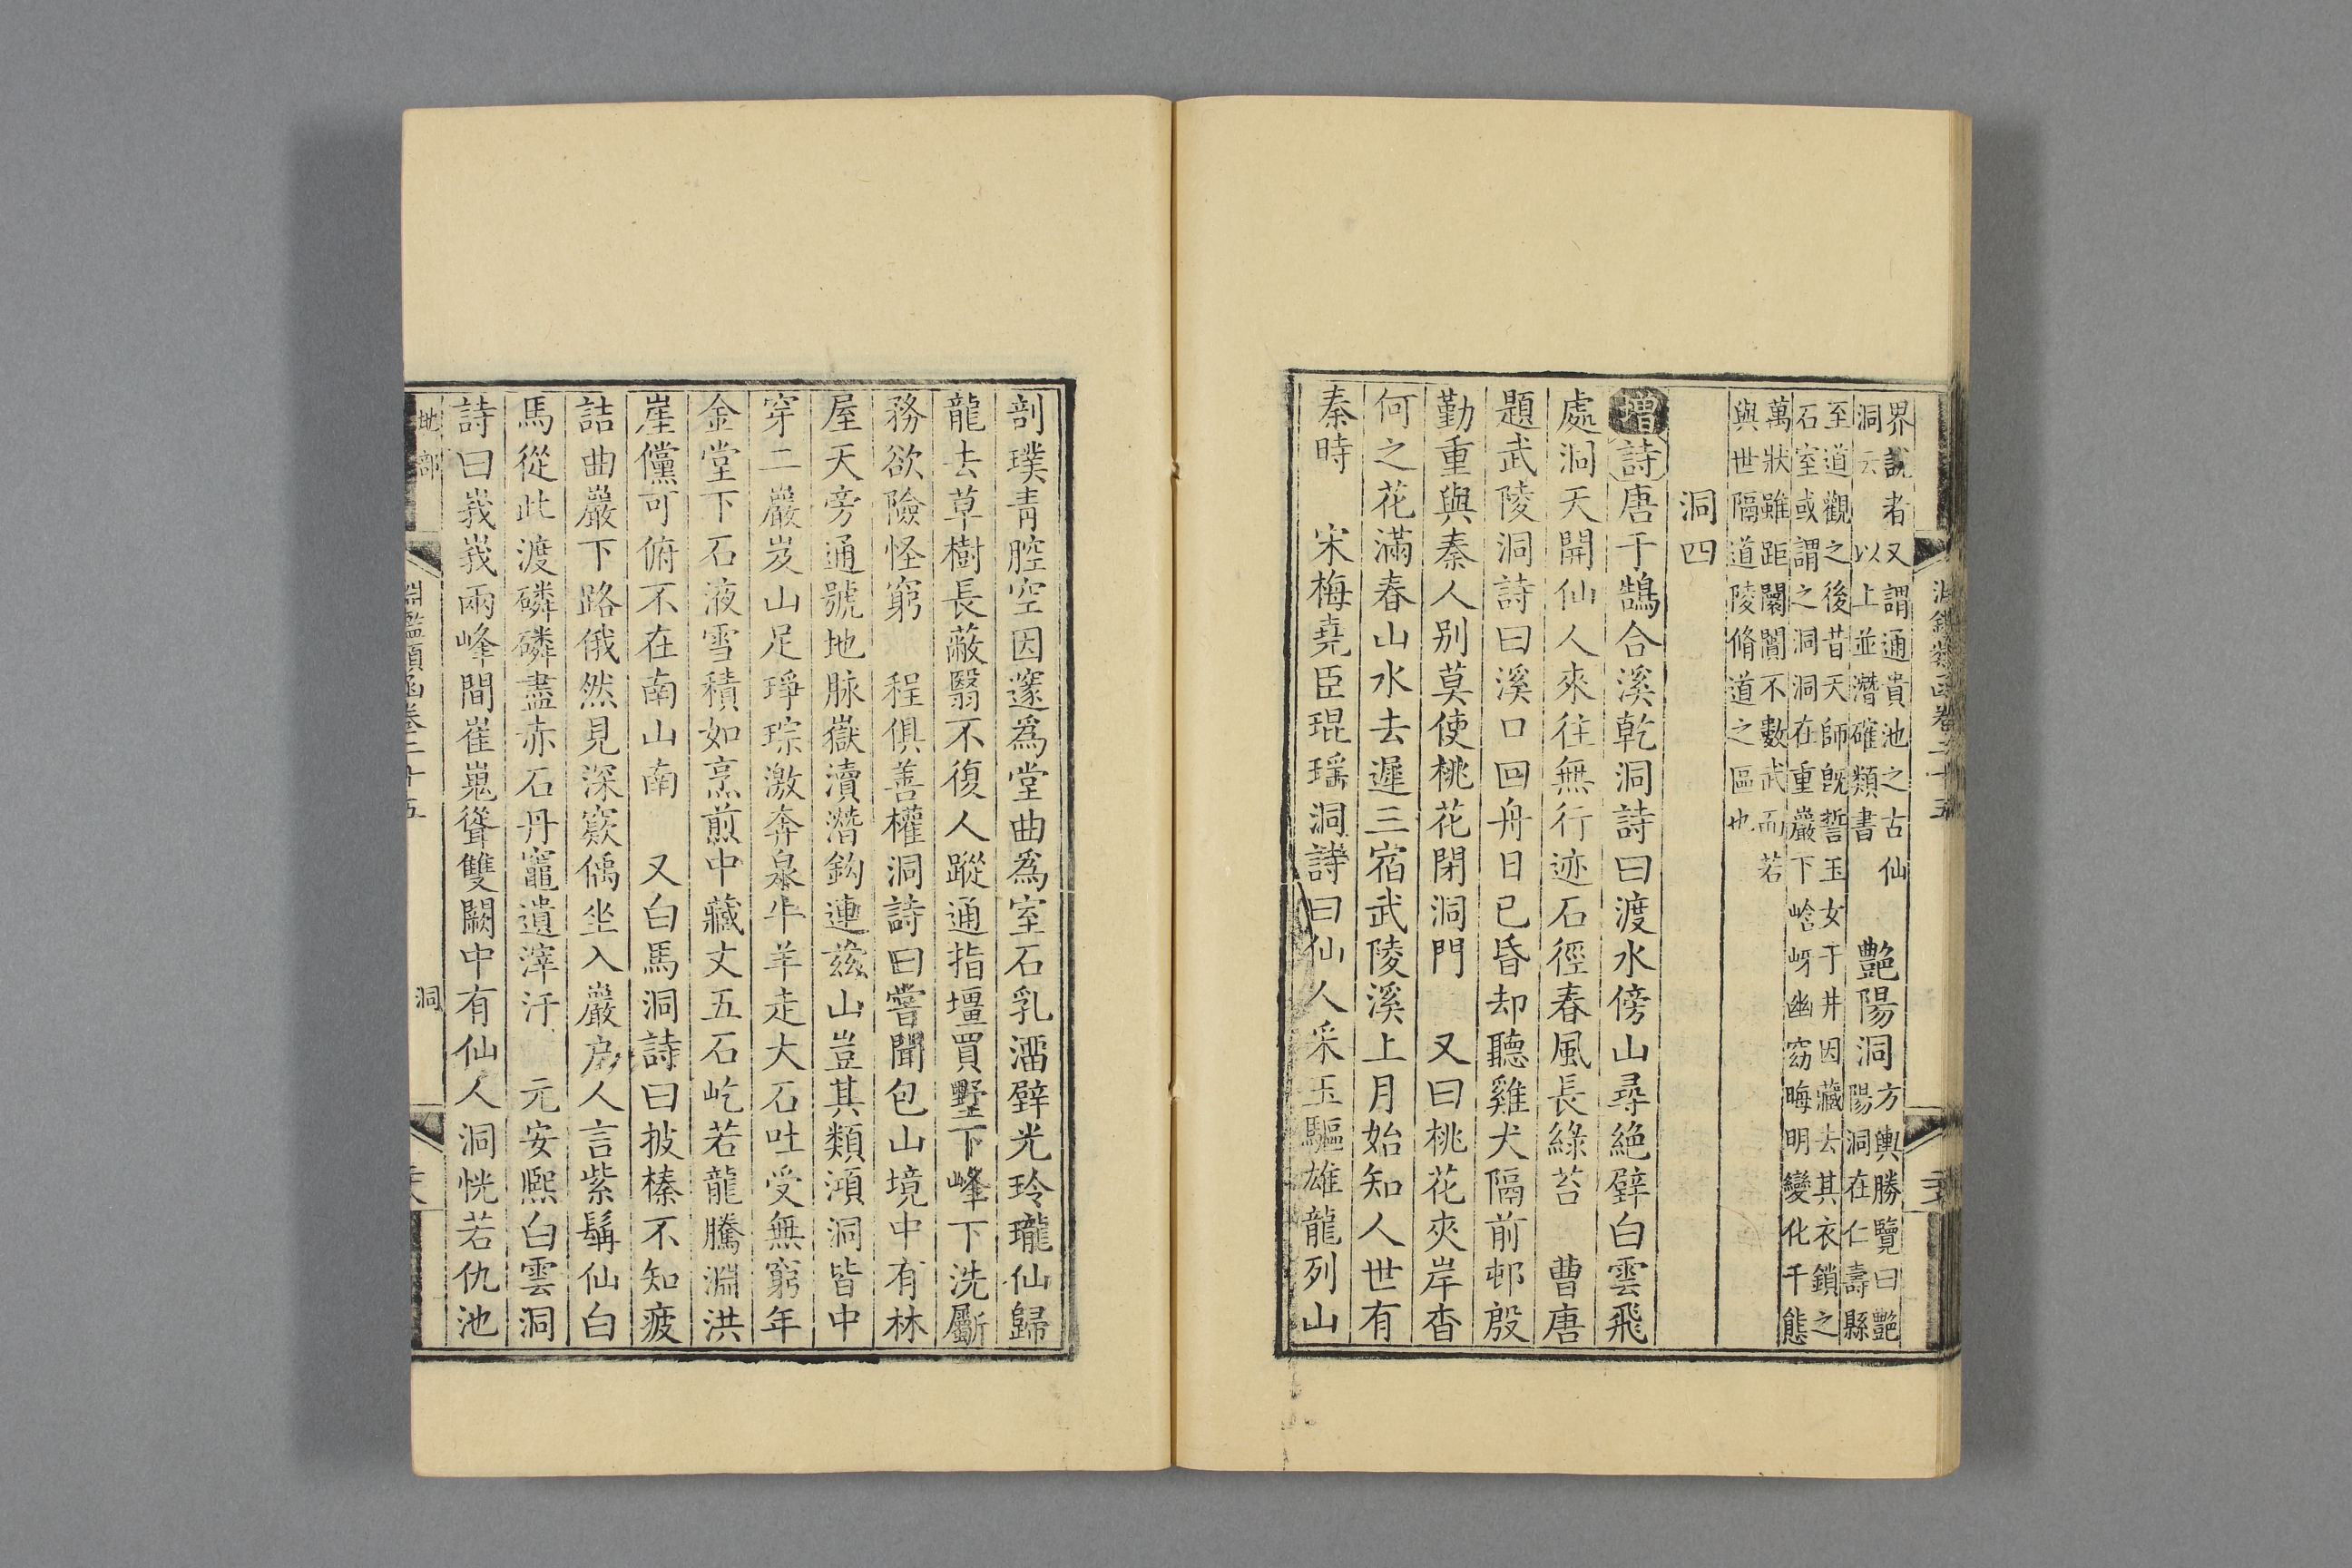 界説者又謂通貴池之古仙
洞云 以上並潛確類書
艷陽洞
方輿勝覽曰艷
陽洞在仁壽縣
至道觀之後昔天師旣誓玉女于井因藏去其衣鎖之
石室或謂之洞洞在重巖下崆岈幽窈晦明變化千態
萬狀雖距闤闠不數武而若
與世隔道陵脩道之區也
洞四
增詩唐于鵠合溪乾洞詩曰渡水傍山尋絶壁白雲飛
處洞天開仙人來往無行迹石徑春風長綠苔 曹唐
題武陵洞詩曰溪口回舟日已昏却聽雞犬隔前邨殷
勤重與秦人别莫使桃花閉洞門 又曰桃花夾岸杳
何之花滿春山水去遲三宿武陵溪上月始知人世有
秦時 宋梅堯臣琨瑤洞詩曰仙人采玉驅雄龍列山
剖璞青腔空因邃爲堂曲爲室石乳溜壁光玲瓏仙歸
龍去草樹長蔽翳不復人蹤通指壃買墅下峰下洗斸
務欲險怪窮 程俱善權洞詩曰嘗聞包山境中有林
屋天旁通號地脉嶽瀆潛鉤連兹山豈其類澒洞皆中
穿二巖岌山足琤琮激奔泉牛羊走大石吐受無窮年
金堂下石液雪積如烹煎中藏丈五石屹若龍騰淵洪
崖儻可俯不在南山南 又白馬洞詩曰披榛不知疲
詰曲巖下路俄然見深窾傴坐入巖户人言紫髯仙白
馬從此渡磷磷盡赤石丹竈遺滓汙 元安熙白雲洞
詩曰峩峩兩峰間崔嵬聳雙闕中有仙人洞恍若仇池
地部 淵鑑類函卷二十五 洞